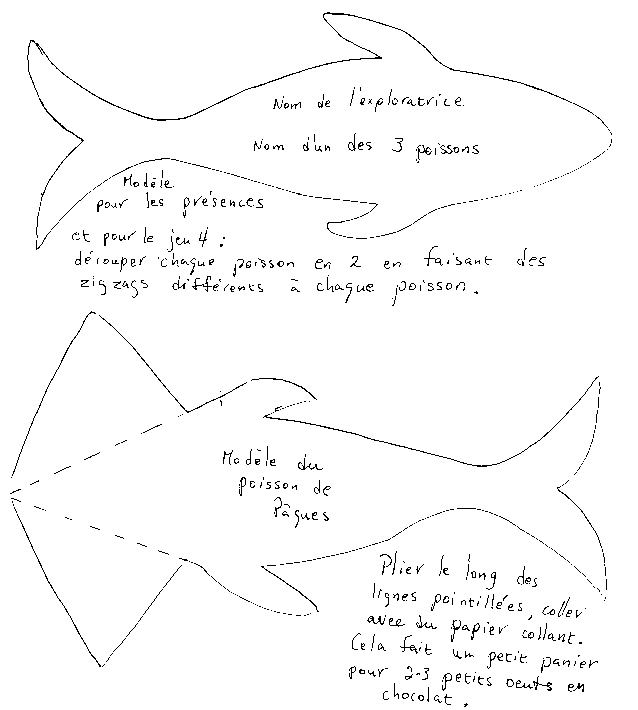 Nom de l'exploratrice
Nom d'un des 3 poissons
Modèle
pour les présences
et pour le jeu 4 :
découper chaque poisson en 2 en faisant des
zigzags différents à chaque poisson.
Modèle du
poisson de
Pâques
Plier le long des
lignes pointillées, coller
avec du papier collant.
Cela fait un petit panier
pour 2-3 petits oeufs en
chocolat.